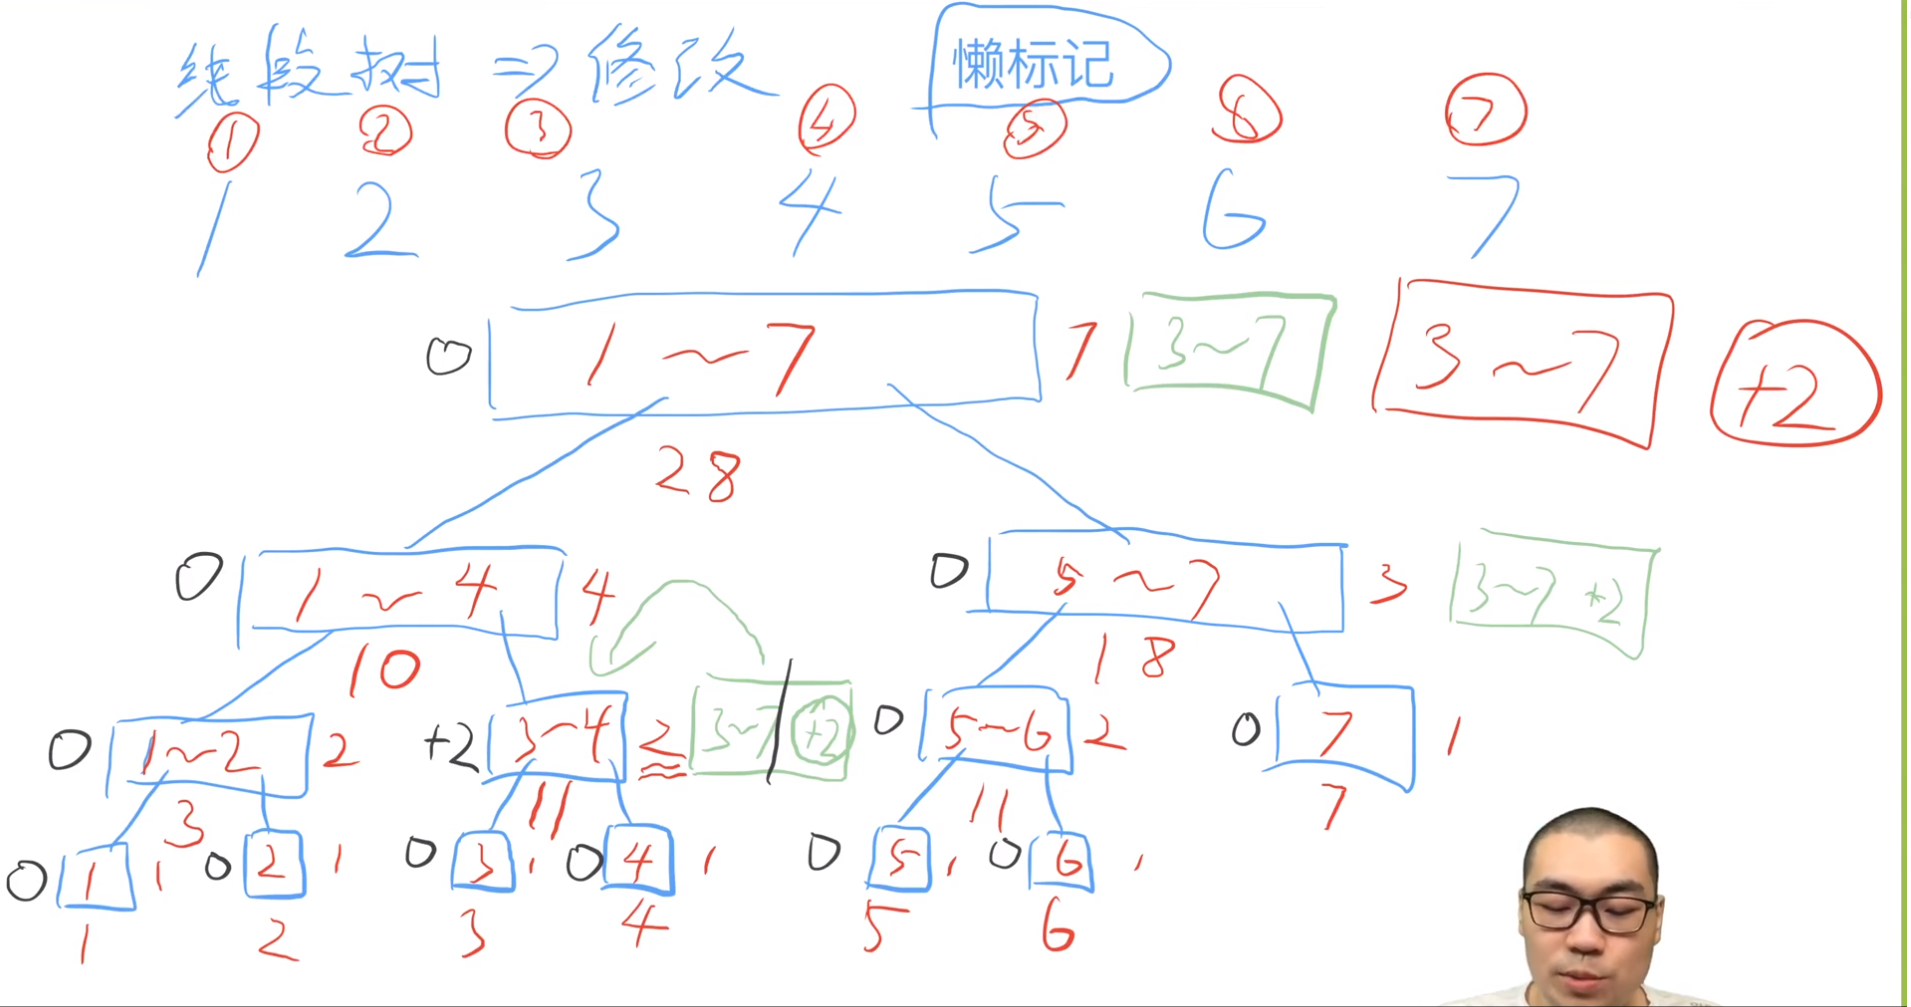 线段树 => 修改 懒标记
① ② ③ ④ ⑤ ⑥ ⑦
1 2 3 4 5 6 7
0 1~7 7 3~7 3~7 +2
28
0 1~4 4 0 5~7 3 3~7 +2
10 18
0 1~2 2 +2 3~4 2 3~7 +2 0 5~6 2 0 7 1
3 11 11 7
0 1 1 0 2 1 0 3 1 0 4 1 0 5 1 0 6 1
1 2 3 4 5 6